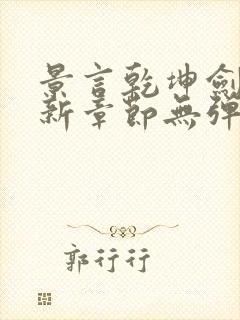 景言乾坤劍
新章節無彈
郭行行